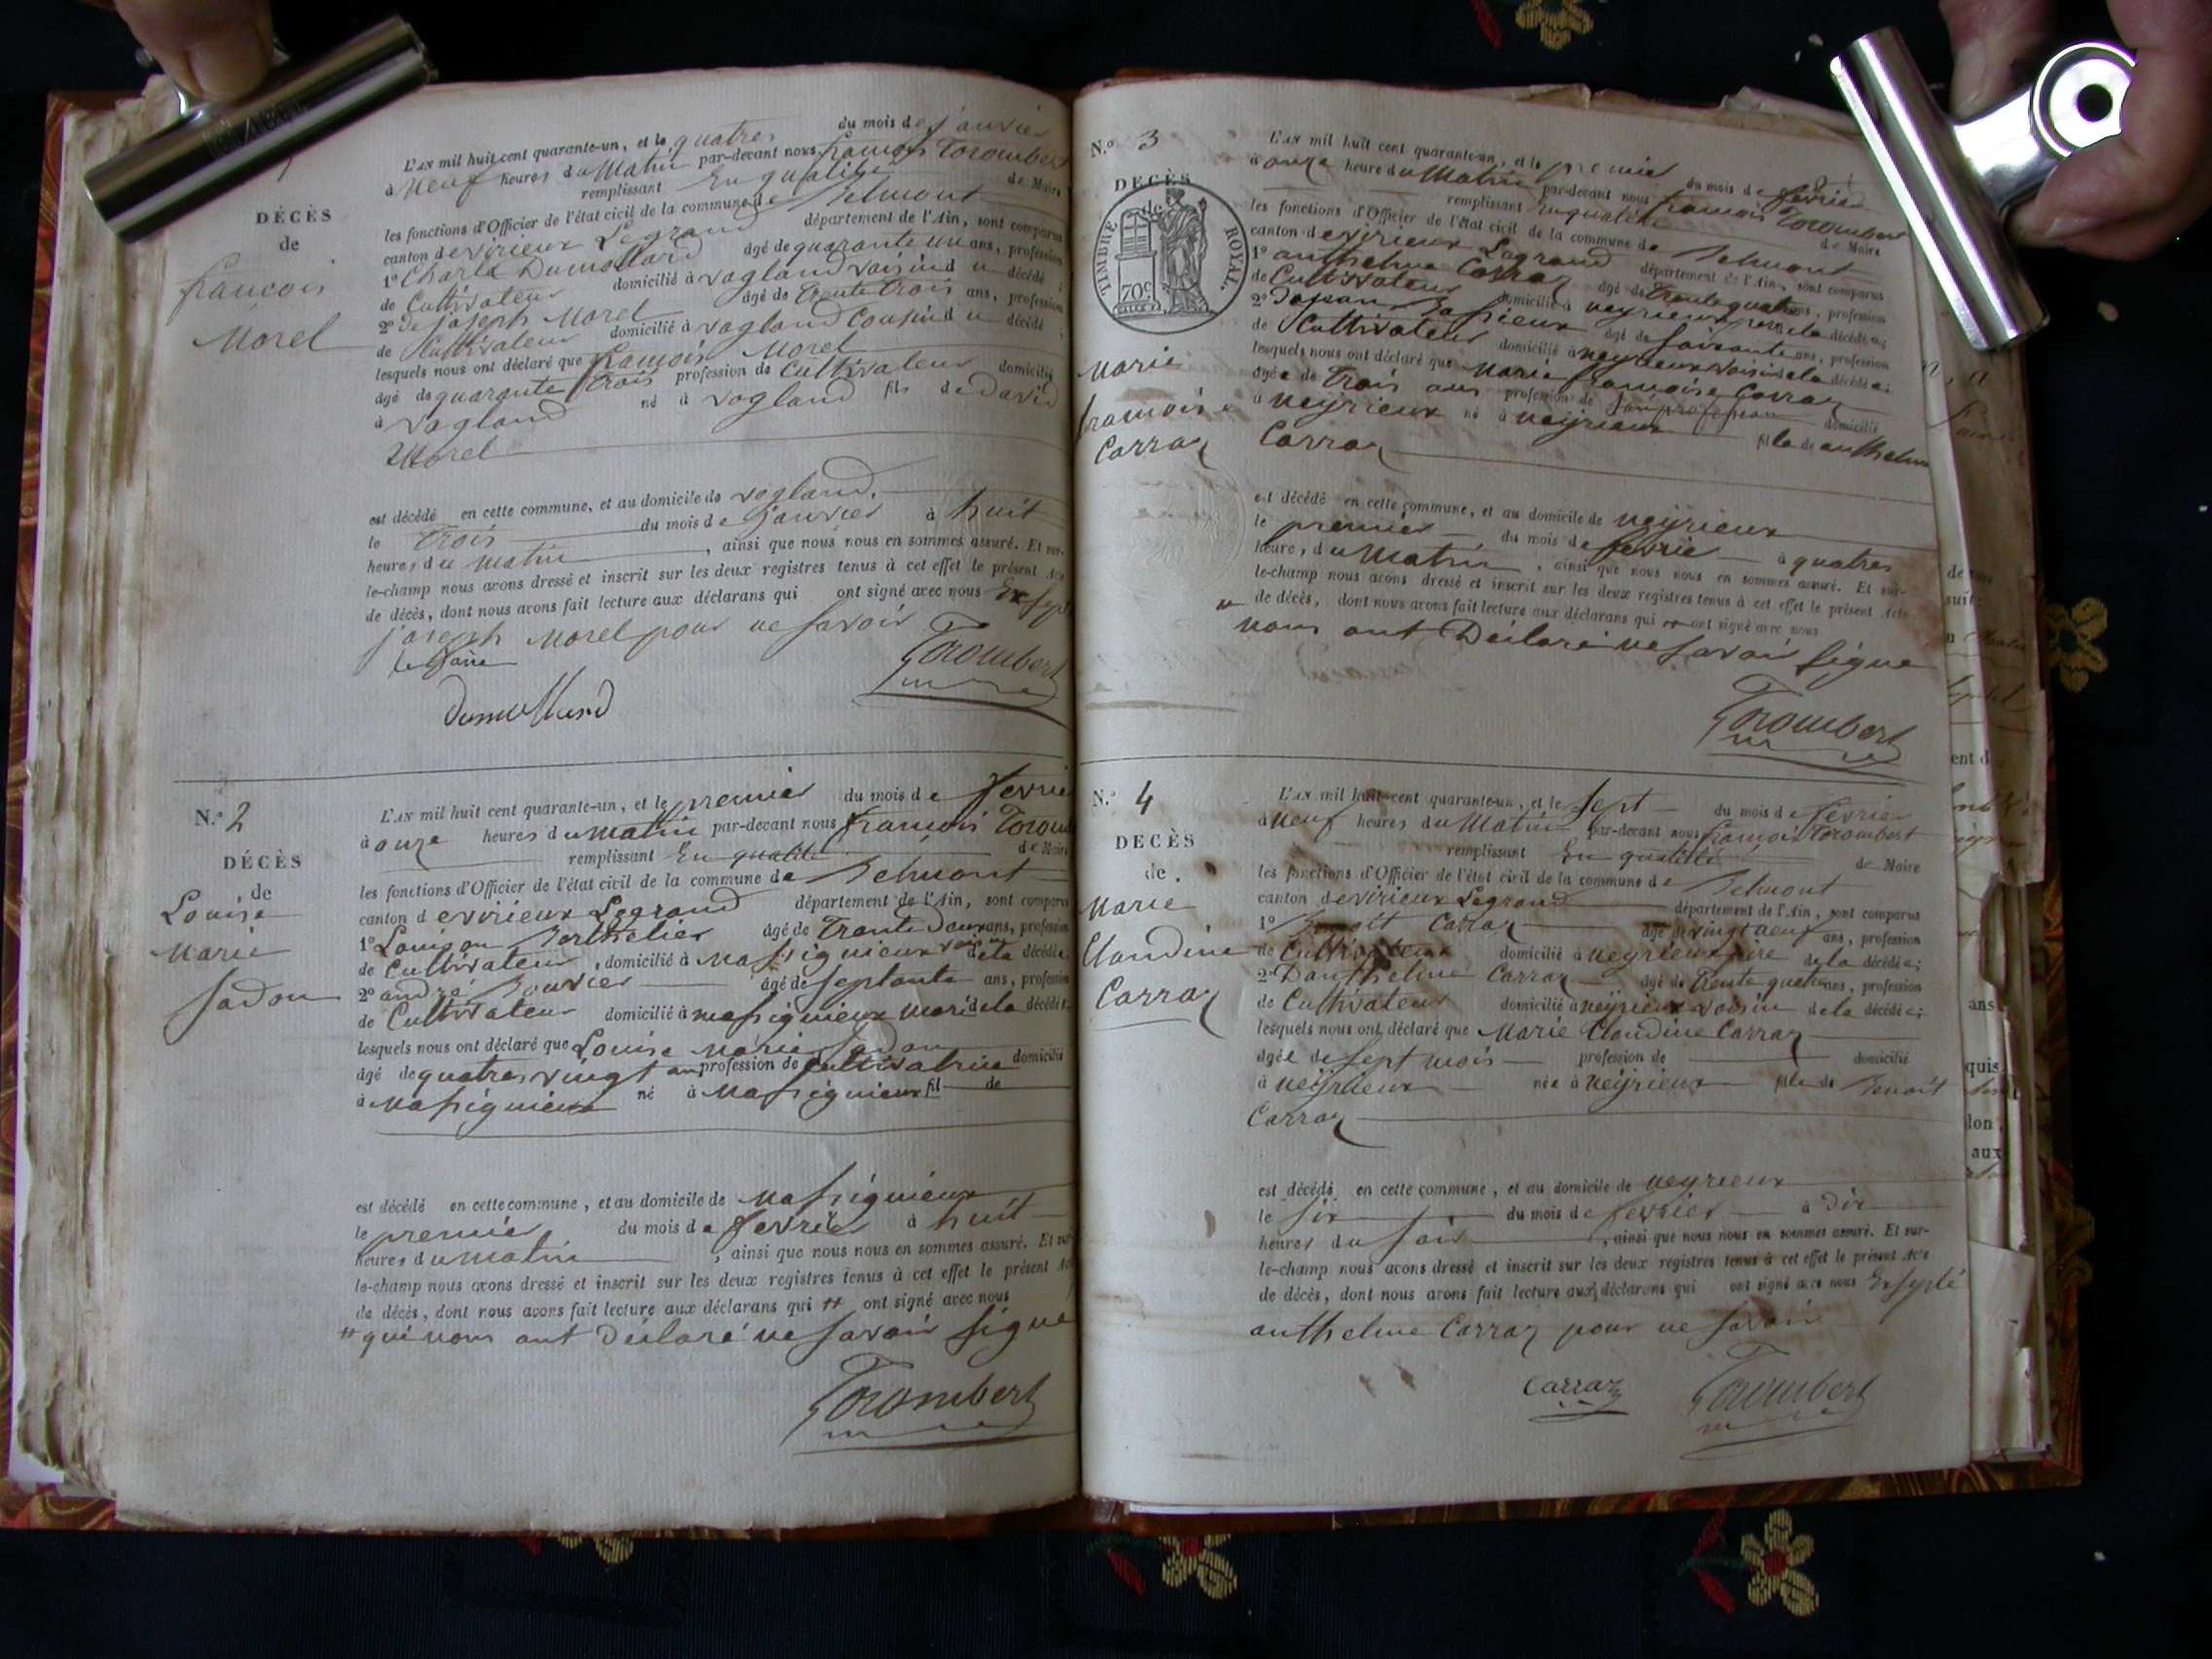 DÉCÈS
de
françois
Morel
L'AN mil huit cent quarante-un, et le quatres du mois de janvier
à Neuf heures du Matin par-devant nous françois Torombert
remplissant En qualité de Maire
les fonctions d'Officier de l'état civil de la commune de Belmont
canton de virieux Legrand département de l'Ain, sont comparus
1º Charle Dumollard âgé de quarante un ans, profession
de Cultivateur domicilié à vogland voisin du décédé;
2º De joseph Morel âgé de trente trois ans, profession
de Cultivateur domicilié à vogland Cousin du décédé;
lesquels nous ont déclaré que françois Morel
âgé de quarante trois profession de Cultivateur domicilié
à vogland né à vogland fils de David
Morel
est décédé en cette commune, et au domicile de vogland.
le trois du mois de janvier à huit
heures du matin, ainsi que nous nous en sommes assuré. Et sur-
le-champ nous avons dressé et inscrit sur les deux registres tenus à cet effet le présent Acte
de décès, dont nous avons fait lecture aux déclarans qui ont signé avec nous Exsepté
joseph Morel pour ne savoir
le faire
Torombert
Dumollard
N.º 2
DÉCÈS
de
Louise
Marie
Sadon
L'AN mil huit cent quarante-un, et le premier du mois de fevrie
à onze heures du matin par-devant nous françois Torom
remplissant En qualité de Maire
les fonctions d'Officier de l'état civil de la commune de Belmont
canton de virieux Legrand département de l'Ain, sont comparus
1º Louison Berthelier âgé de Trente Deux ans, profession
de Cultivateur, domicilié à Massignieux voisin de la décédée
2º andré Bouvier âgé de septante ans, profession
de Cultivateur domicilié à massignieux mari de la décédée
lesquels nous ont déclaré que Louise Marie Sadon
âgé de quatres vingt ans profession de Cultivatrice domicilié
à Massignieux né à Massignieux fil de
est décédé en cette commune, et au domicile de Massignieux
le premier du mois de fevrier à huit
heures du matin, ainsi que nous nous en sommes assuré. Et sur-
le-champ nous avons dressé et inscrit sur les deux registres tenus à cet effet le présent Acte
de décès, dont nous avons fait lecture aux déclarans qui # ont signé avec nous
# qui nous ont Déclaré ne savoir signe
Torombert
N.º 3
DECÈS
de
TIMBRE ROYAL.
70c
Marie
françoise
Carraz
L'AN mil huit cent quarante-un, et le premier du mois de févrie
à onze heure du Matin par-devant nous françois Torombert
remplissant En qualité de Maire
les fonctions d'Officier de l'état civil de la commune de Belmont
canton de virieux Legrand département de l'Ain, sont comparus
1º anthelme Carraz âgé de trente quatre ans, profession
de Cultivateur domicilié à neyrieux père de la décédée;
2º âgé de soixante ans, profession
de Cultivateur domicilié à neyrieux voisin de la décédée;
lesquels nous ont déclaré que Marie françoise Carraz
âgée de trois ans profession de Sans profession domicilié
à neyrieux né à neyrieux fille de anthelme
Carraz
est décédé en cette commune, et au domicile de neyrieux
le premier du mois de fevrie à quatres
heure, du Matin, ainsi que nous nous en sommes assuré. Et sur-
le-champ nous avons dressé et inscrit sur les deux registres tenus à cet effet le présent Acte
de décès, dont nous avons fait lecture aux déclarans qui # ont signé avec nous
# nous ont Déclaré ne savoir signe
Torombert
N.º 4
DÉCÈS
de
Marie
Claudine
Carraz
L'AN mil huit cent quarante-un, et le Sept du mois de fevrier
à Neuf heures du Matin par-devant nous françois Torombert
remplissant En qualité de Maire
les fonctions d'Officier de l'état civil de la commune de Belmont
canton de virieux Legrand département de l'Ain, sont comparus
1º Benoit Carraz âgé de vingt neuf ans, profession
de Cultivateur domicilié à neyrieux père de la décédée;
2º D'anthelme Carraz âgé de trente quatre ans, profession
de Cultivateur domicilié à neyrieux voisin de la décédée;
lesquels nous ont déclaré que Marie Claudine Carraz
âgée de sept mois profession de domicilié
à neyrieux née à neyrieux fille de Benoit
Carraz
est décédé en cette commune, et au domicile de neyrieux
le six du mois de fevrier à Dix
heures du soir, ainsi que nous nous en sommes assuré. Et sur-
le-champ nous avons dressé et inscrit sur les deux registres tenus à cet effet le présent Acte
de décès, dont nous avons fait lecture aux déclarans qui ont signé avec nous Exsepté
anthelme Carraz pour ne savoir
Carraz Torombert